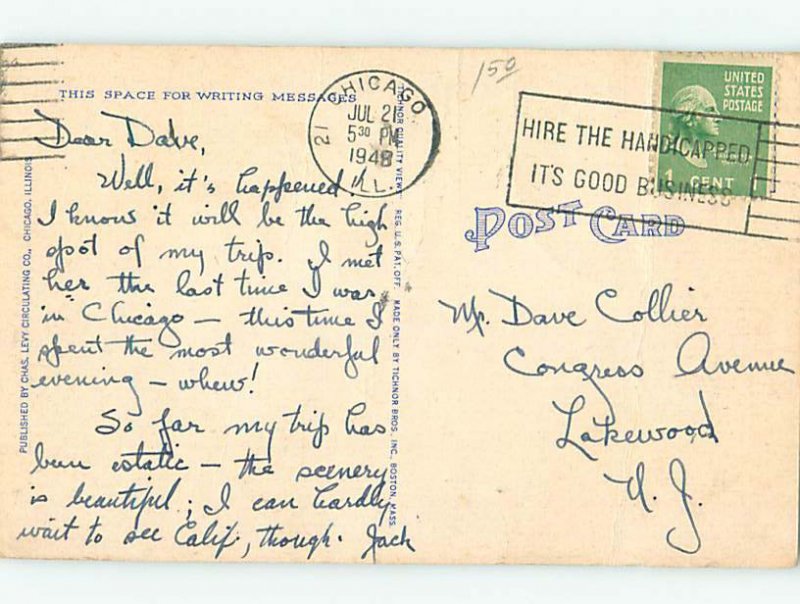 150
THIS SPACE FOR WRITING MESSAGES
CHICAGO
21
JUL 21
5 30 PM
1948
ILL.
HIRE THE HANDICAPPED
IT'S GOOD BUSINESS
UNITED
STATES
POSTAGE
1 CENT
POST CARD
Dear Dave,
Well, it's happened!
I know it will be the high
spot of my trip. I met
her the last time I was
in Chicago – this time I
spent the most wonderful
evening – whew!
So far my trip has
been estatic – the scenery
is beautiful; I can hardly
wait to see Calif, though. Jack
Mr. Dave Collier
Congress Avenue
Lakewood
N. J.
PUBLISHED BY CHAS. LEVY CIRCULATING CO., CHICAGO, ILLINOIS
TICHNOR QUALITY VIEWS REG. U.S. PAT. OFF. MADE ONLY BY TICHNOR BROS. INC., BOSTON, MASS.